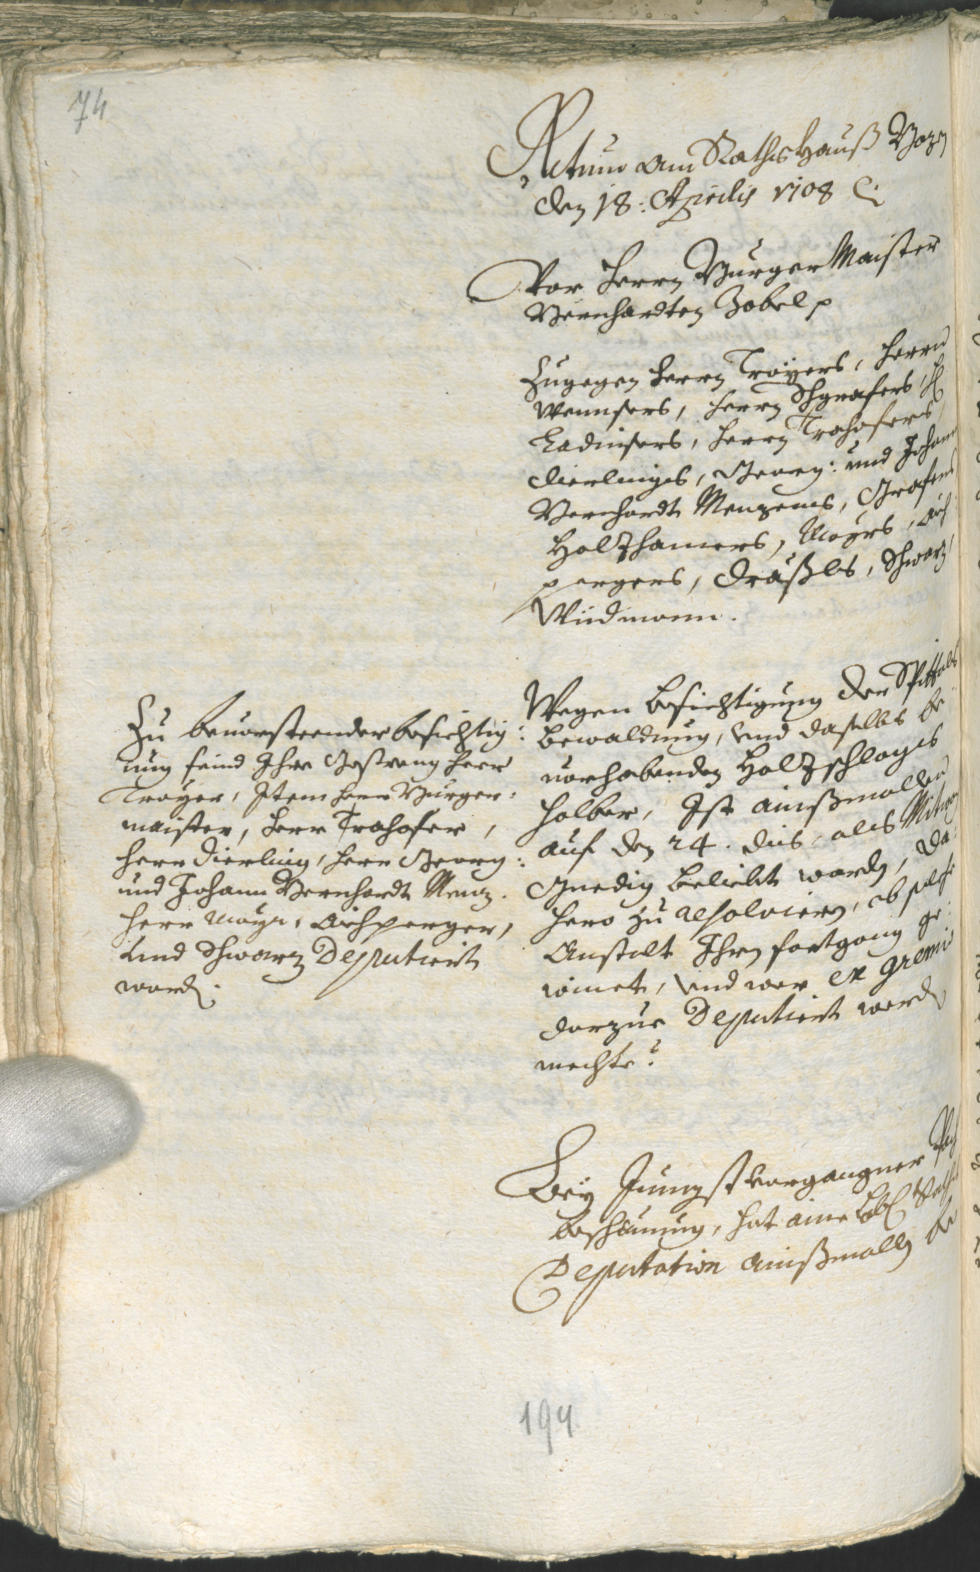 74
Actum am Rathshauß Bozen
den 18: Aprilis 1708
Vor herrn Burgermaister
Bernhardten Zobel p
Zugegen herrn Troyers, herrn
Wennsers, herrn Schgrafers, H
Ladinsers, herrn Trahofers,
Dierlings, Georg: und Johann
Bernhardt Menzens, Grafens
Holzhamers, Mayrs, Aich
pergers, Dräxls, Schwarz,
Widmann.
Wegen besichtigung der Spittals
bewaldung, und daselbs be
vorhabenden Holzschlages
halber, Ist ainßmallen
auf den 24. dis, als Mitwoch
Gnedig beliebt worden, da
hero zu resolviern, ob solche
Anstalt Ihren fortgang ge
winnet, und wer ex gremio
darzue Deputiert werden
mechte?
Zu bevorsteender besichtig:
ung seind Ihre Gestreng herr
Troyer, Item herr Burger:
maister, herr Trahofer,
herr Dierling, herr Georg:
und Johann Bernhardt Menz.
herr Mayr, Aichperger,
und Schwarz Deputiert
worden.
Bey Jüngst vorgangner
beschauung, hat aine Löbl Raths
Deputation ainßmallen be
194